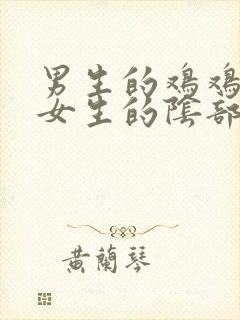 男生的鸡鸡
女生的陰部
黄蘭琴